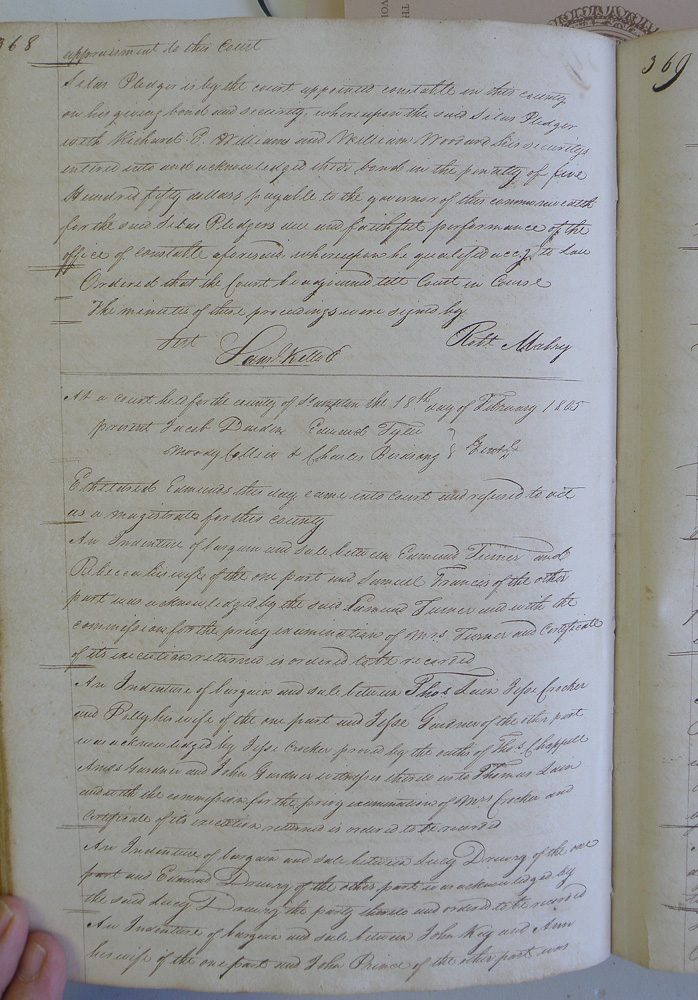 368
appointment to this Court
Silas Pledger is by the court appointed constable in this county
on his giving bond and security, whereupon the said Silas Pledger
with Richard P. Williams and William Woodard his securitys
entered into and acknowledged their bond in the penalty of five
Hundred fifty dollars payable to the governor of this commonwealth
for the said Silas Pledgers due and faithfull performance of the
office of constable aforesaid whereupon he qualified accg. to Law
Ordered that the Court be adjourned till Court in Course
The minutes of these proceedings were signed by
Test
Saml. Kello C
Robt. Mabry
At a court held for the county of Sampton the 18th day of February 1805
present Jacob Darden Edmund Tyler
Moody Collier & Charles Birdsong
Etheldred Edmunds this day came into Court and refused to act
as a magistrate for this county
An Indenture of bargain and sale between Edmund Turner and
Rebecca his wife of the one part and Samuel Francis of the other
part was acknowledged by the said Edmund Turner and with the
commission for the privy examination of Mrs Turner and certificate
of its execution returned is ordered to be recorded
An Indenture of bargain and sale between Thos Lain Jesse Crocker
and Polly his wife of the one part and Jesse Gardner of the other part
was acknowledged by Jesse Crocker proved by the oaths of Thos Chappell
Amos Gardner and John Gardner witnesses thereto as to Thomas Lain
and with the commission for the privy examination of Mrs Crocker and
Certificate of its execution returned is ordered to be recorded
An Indenture of bargain and sale between Lucy Drewry of the one
part and Edmund Drewry of the other part was acknowledged by
the said Lucy Drewry the party thereto and ordered to be recorded
An Indenture of bargain and sale between John Key and Ann
his wife of the one part and John Prince of the other part was
369